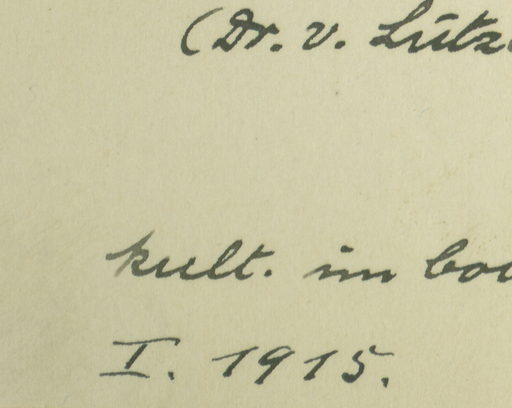 (Dr. v. Lütz
kult. im bo
I. 1915.